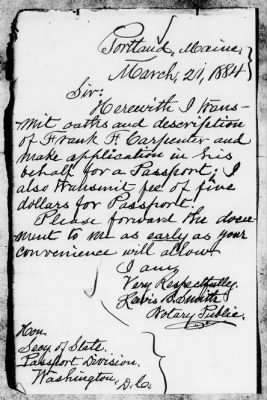 Portland, Maine,
March, 21, 1884
Sir:
Herewith I trans-
mit oaths and description
of Frank F. Carpenter and
make application in his
behalf for a Passport; I
also transmit fee of five
dollars for Passport.
Please forward the docu-
ment to me as early as your
convenience will allow.
I am,
Very Respectfully,
Lewis B. Smith
Notary Public.
Hon.
Secy of State.
Passport Division.
Washington, D.C.